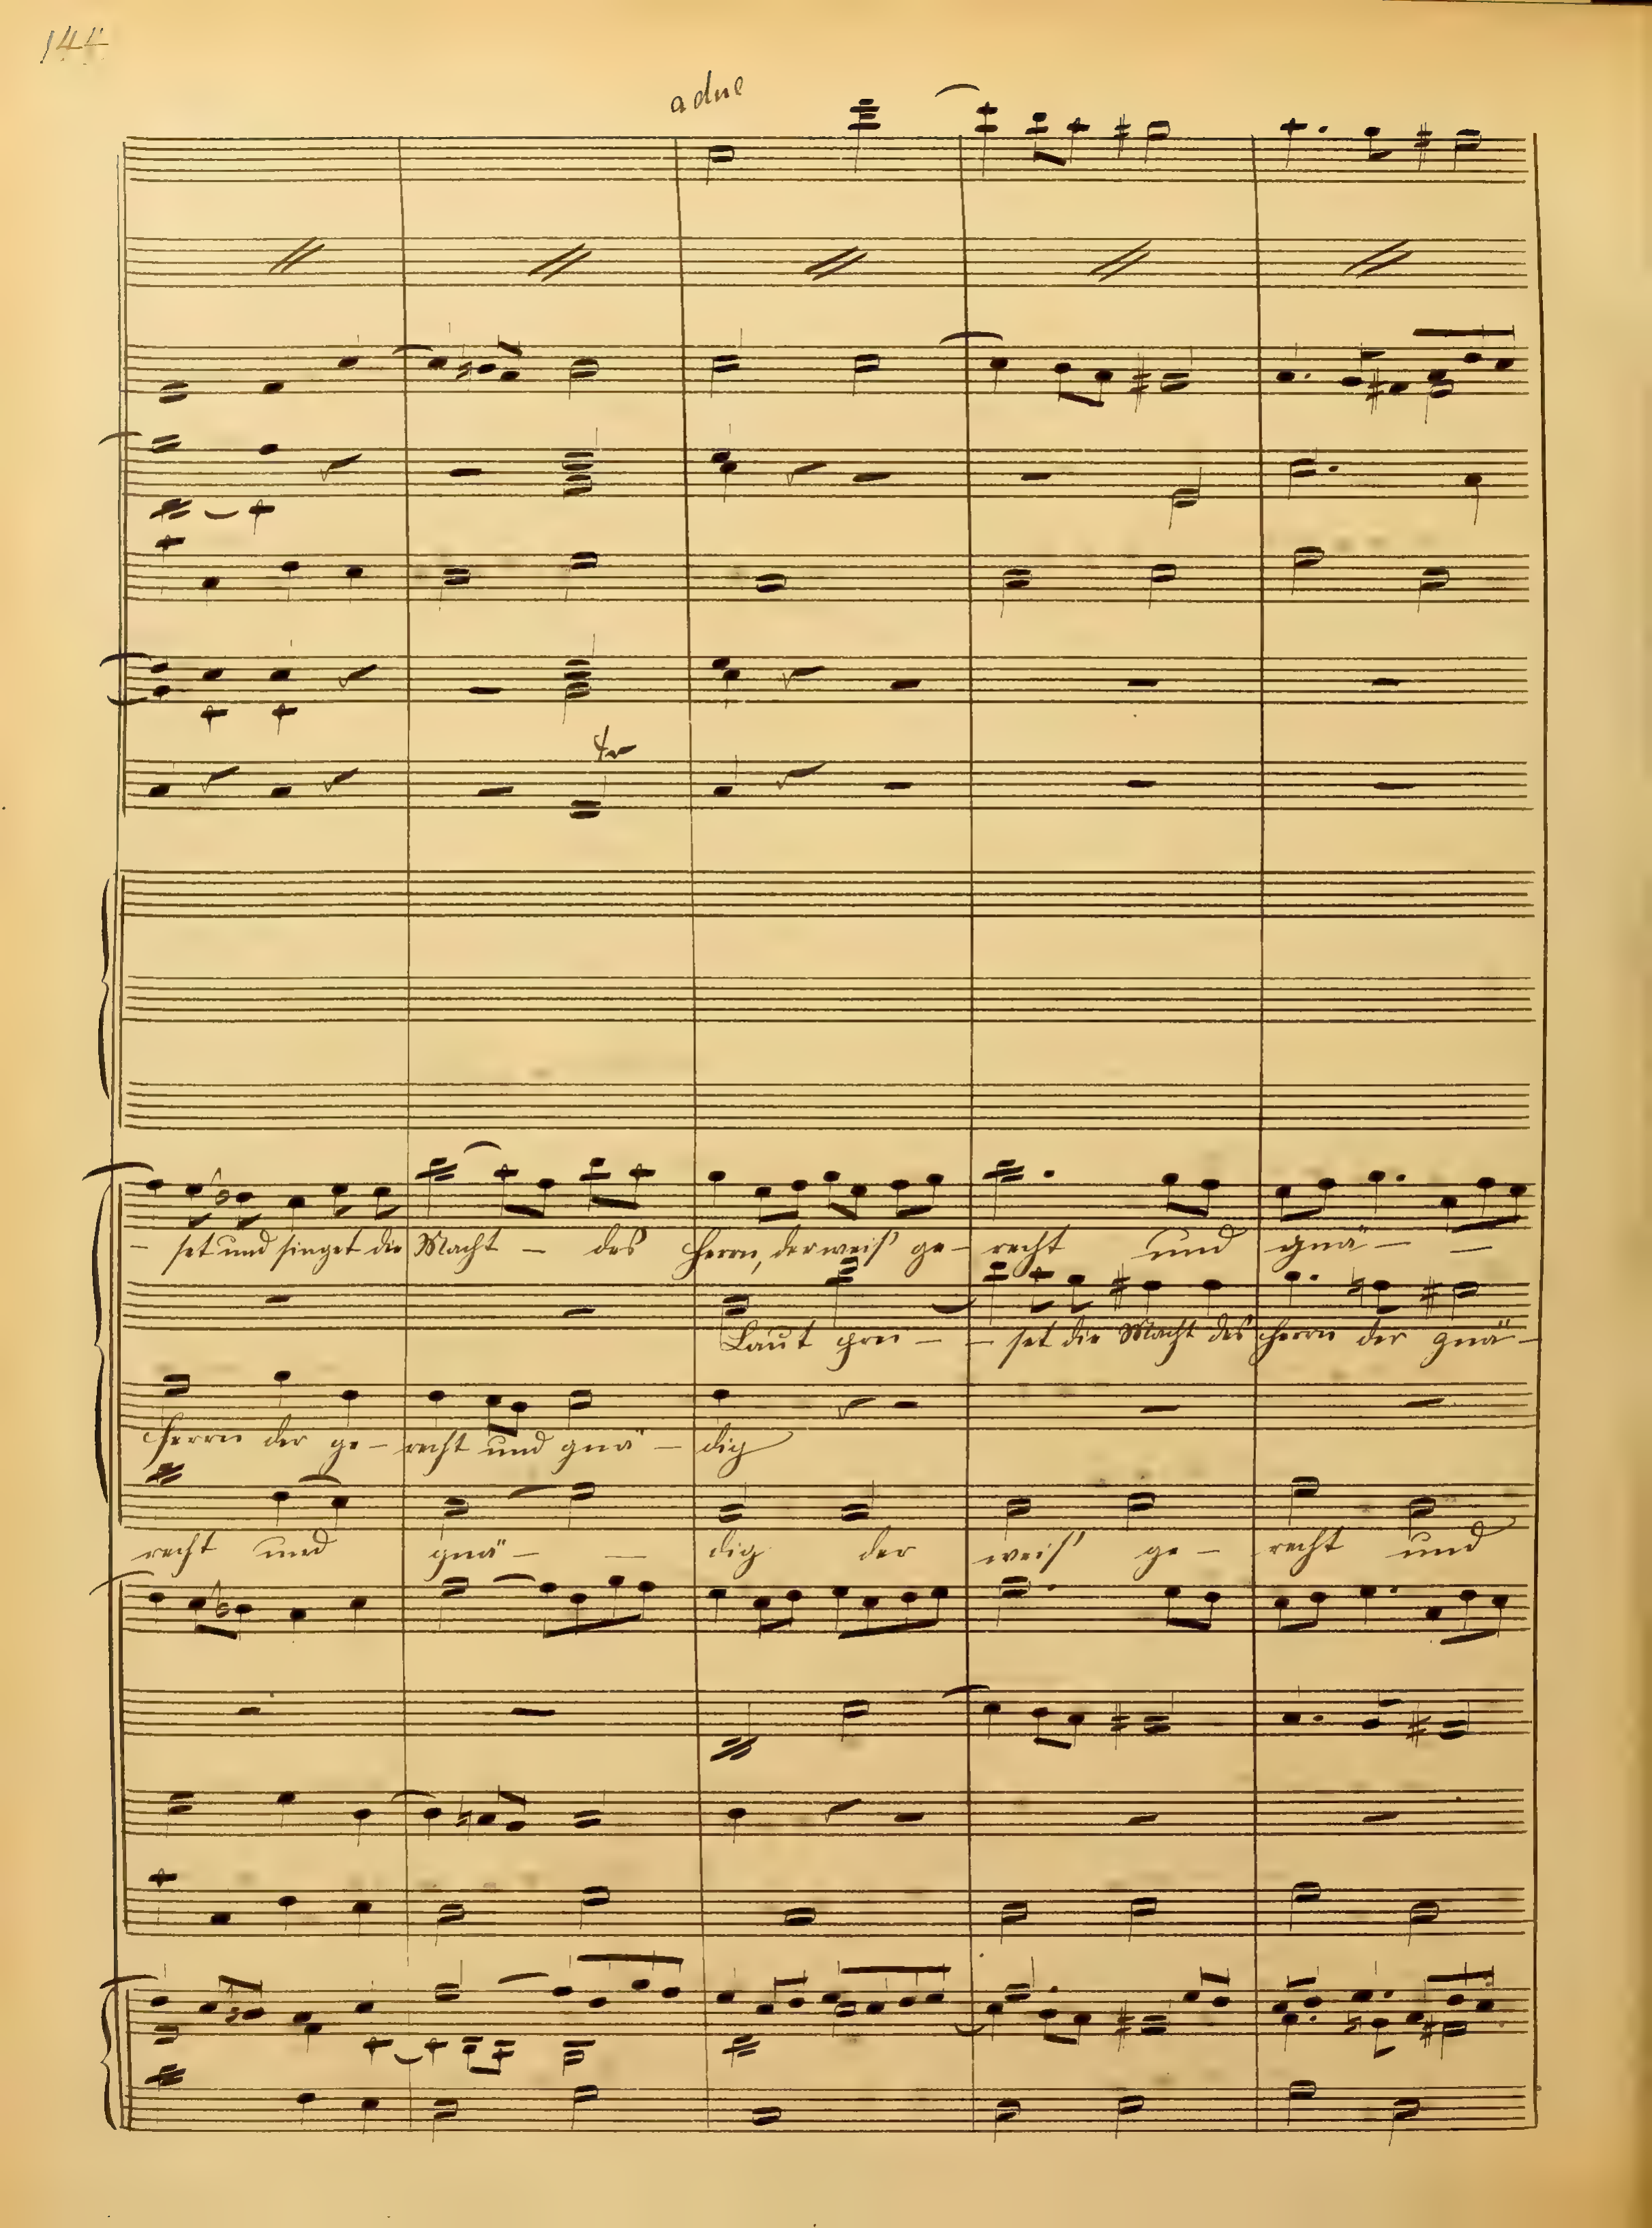 144
a due
tr
- set und singet die Macht - des Herrn, der weis' ge- recht und gnä- -
Laut prei- - set die Macht des Herrn der gnä-
Herrn der ge- recht und gnä- dig
recht und gnä- - dig der weis' ge- recht und